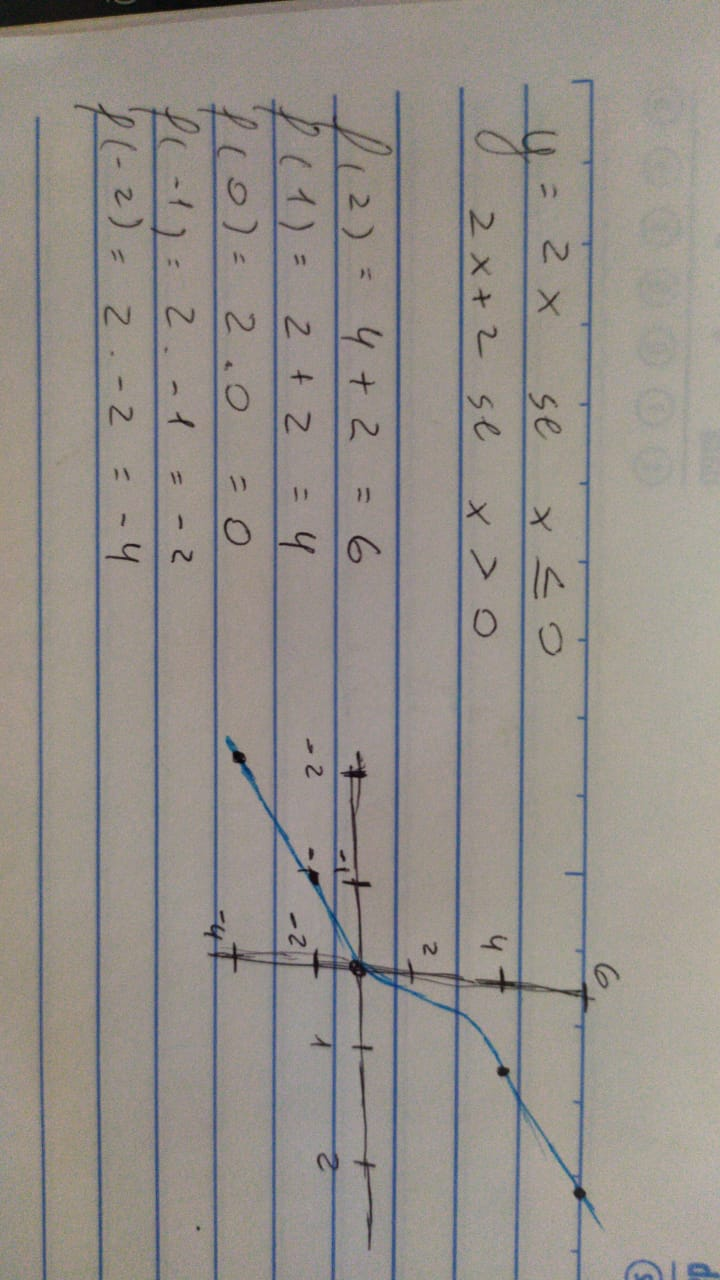 y = 2x se x ≤ 0
y 2x+2 se x > 0
f(2) = 4 + 2 = 6
f(1) = 2 + 2 = 4
f(0) = 2.0 = 0
f(-1) = 2.-1 = -2
f(-2) = 2.-2 = -4
6
4
2
-2 -1 1 2
-1
-2
-4